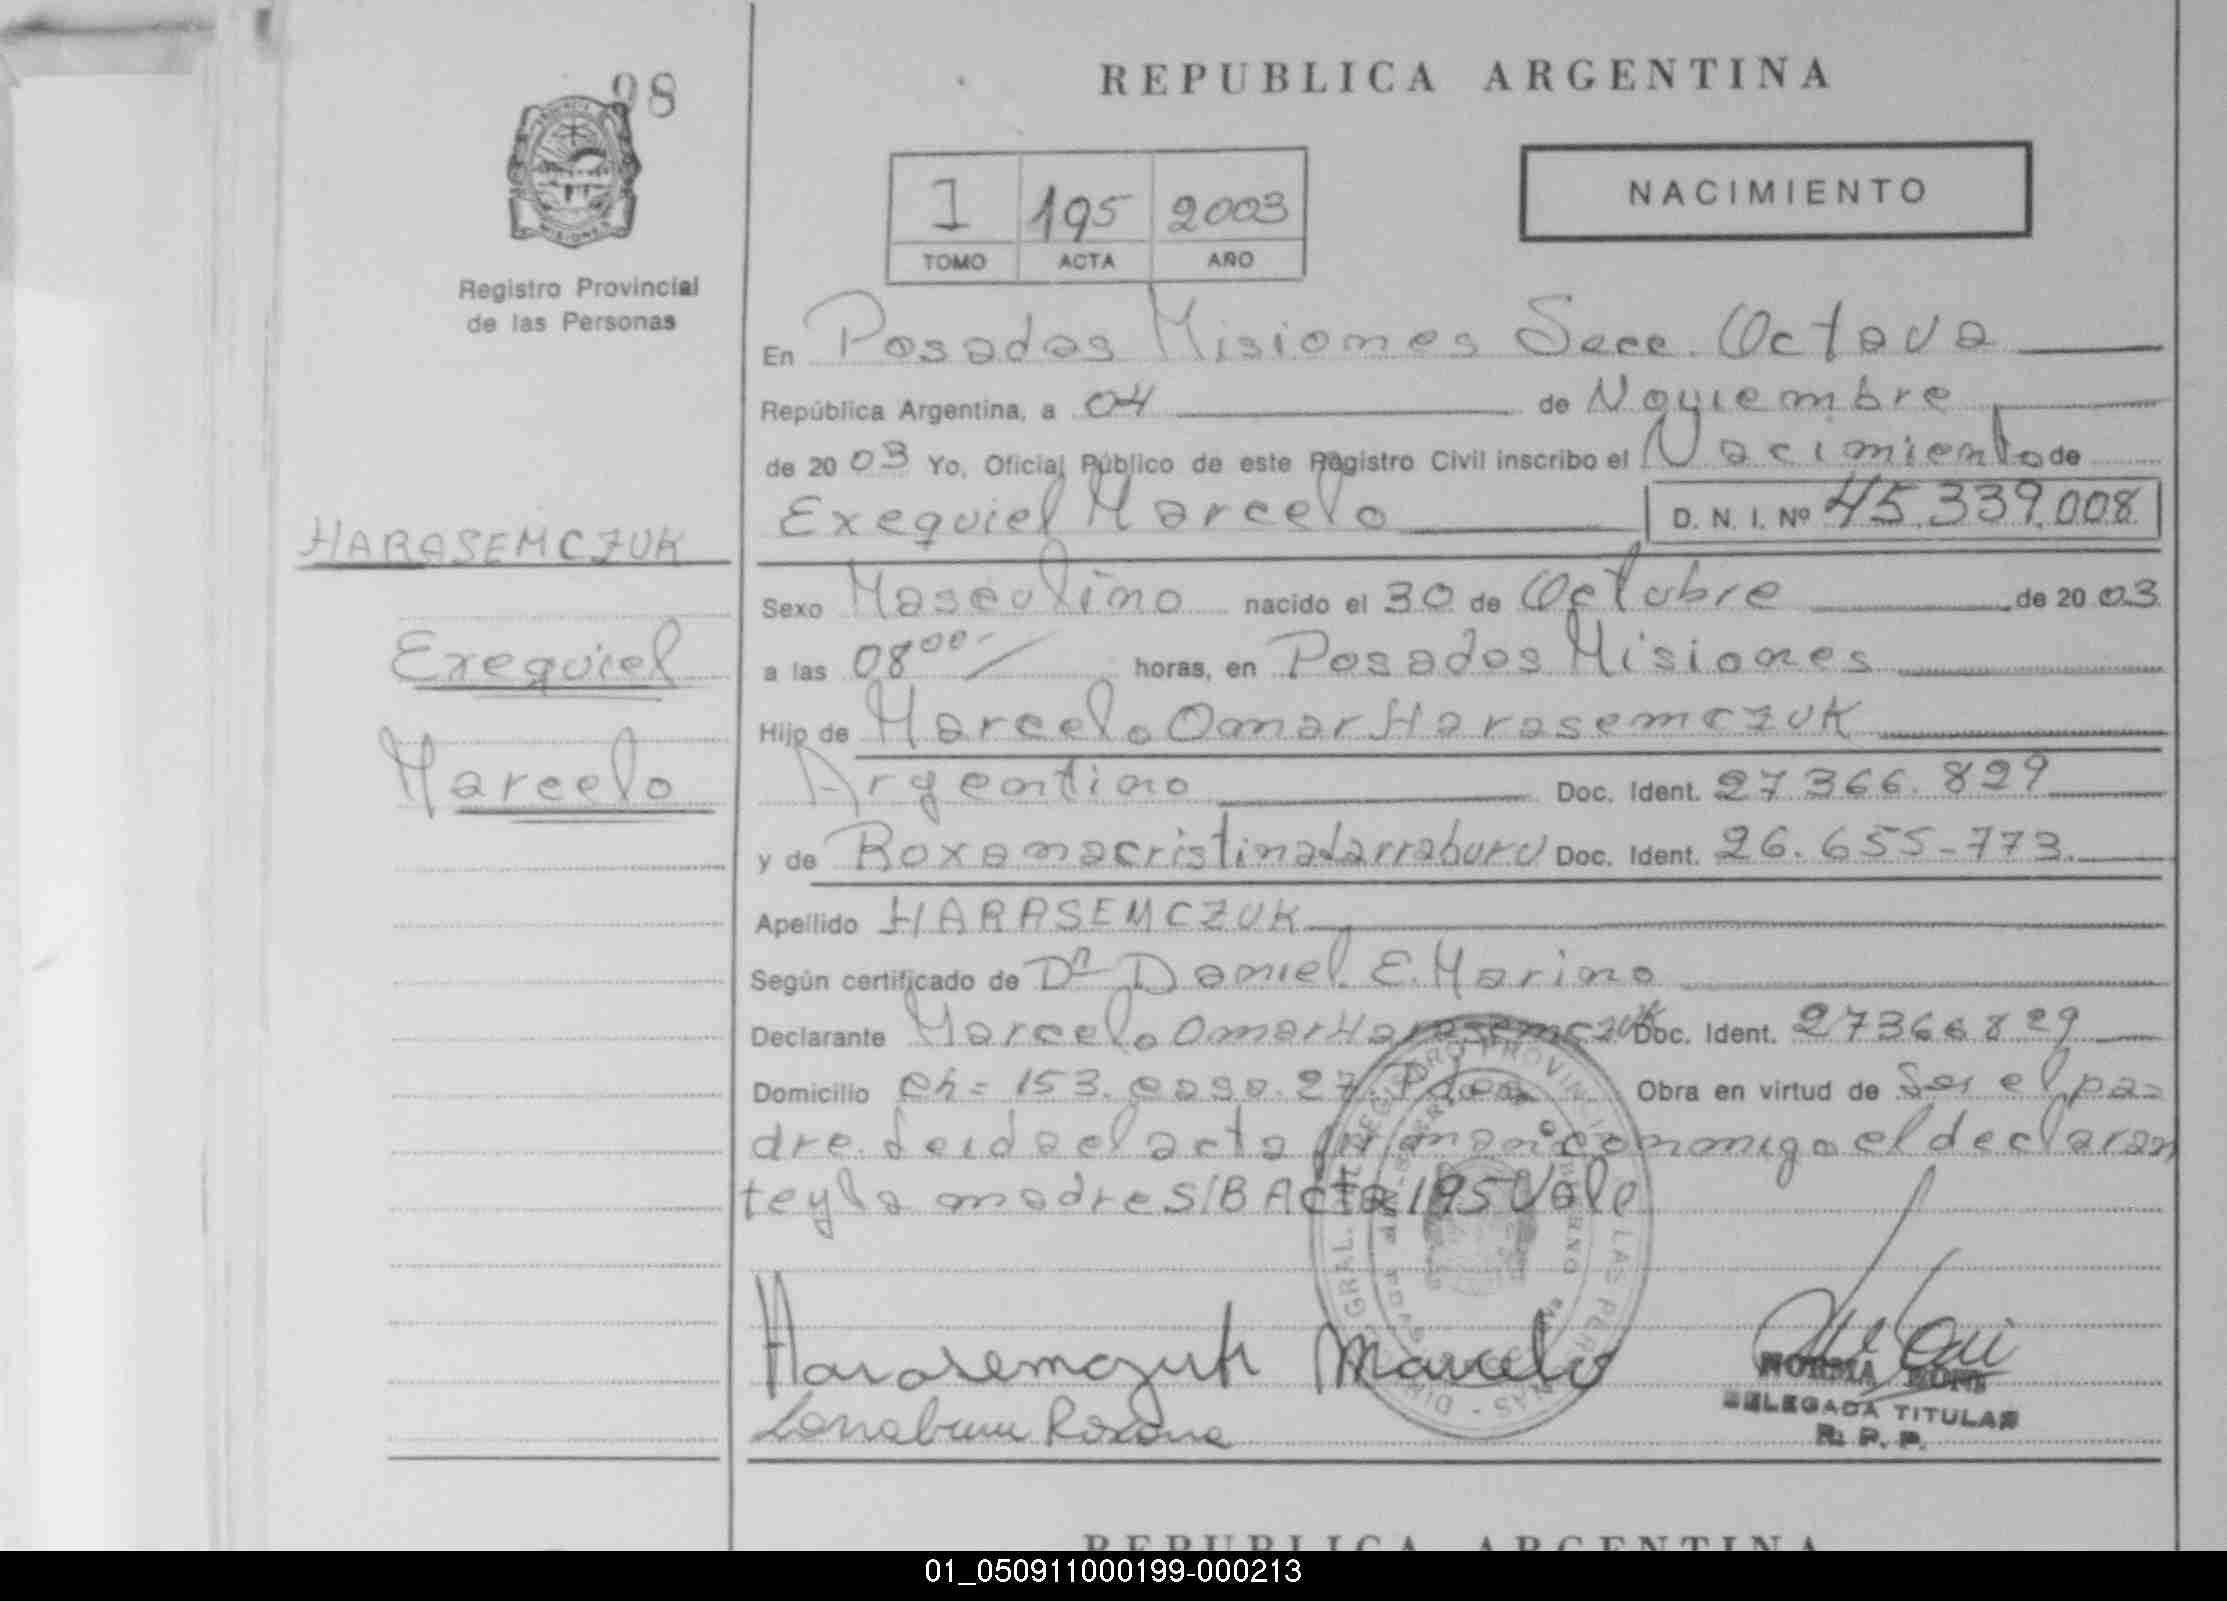 98
REPUBLICA ARGENTINA
NACIMIENTO
I 195 2003
TOMO ACTA AÑO
PROVINCIA
MISIONES
Registro Provincial
de las Personas
En Posadas Misiones Secc. Octava
República Argentina, a 04 de Noviembre
de 2003 Yo, Oficial Público de este Registro Civil inscribo el Nacimiento de
Exequiel Marcelo D. N. I. Nº 45.339.008
HARASEMCZUK
Exequiel
Marcelo
Sexo Masculino nacido el 30 de Octubre de 2003
a las 08 00 horas, en Posadas Misiones
Hijo de Marcelo Omar Harasemczuk
Argentino Doc. Ident. 27366.829
y de Roxana cristina Larraburu Doc. Ident. 26.655-773.
Apellido HARASEMCZUK
Según certificado de Dn Daniel E. Marino
Declarante Marcelo Omar Harasemczuk Doc. Ident. 27366829
Domicilio Ch= 153. casa. 27. Pdas Obra en virtud de Ser el pa=
dre. Leida el acta firman conmigo el declaran
te y la madre S/B Acta 195 Vale
Harasemczuk Marcelo
Larraburu Roxana
NORMA
DELEGADA TITULAR
R. P. P.
REPUBLICA ARGENTINA
01_050911000199-000213